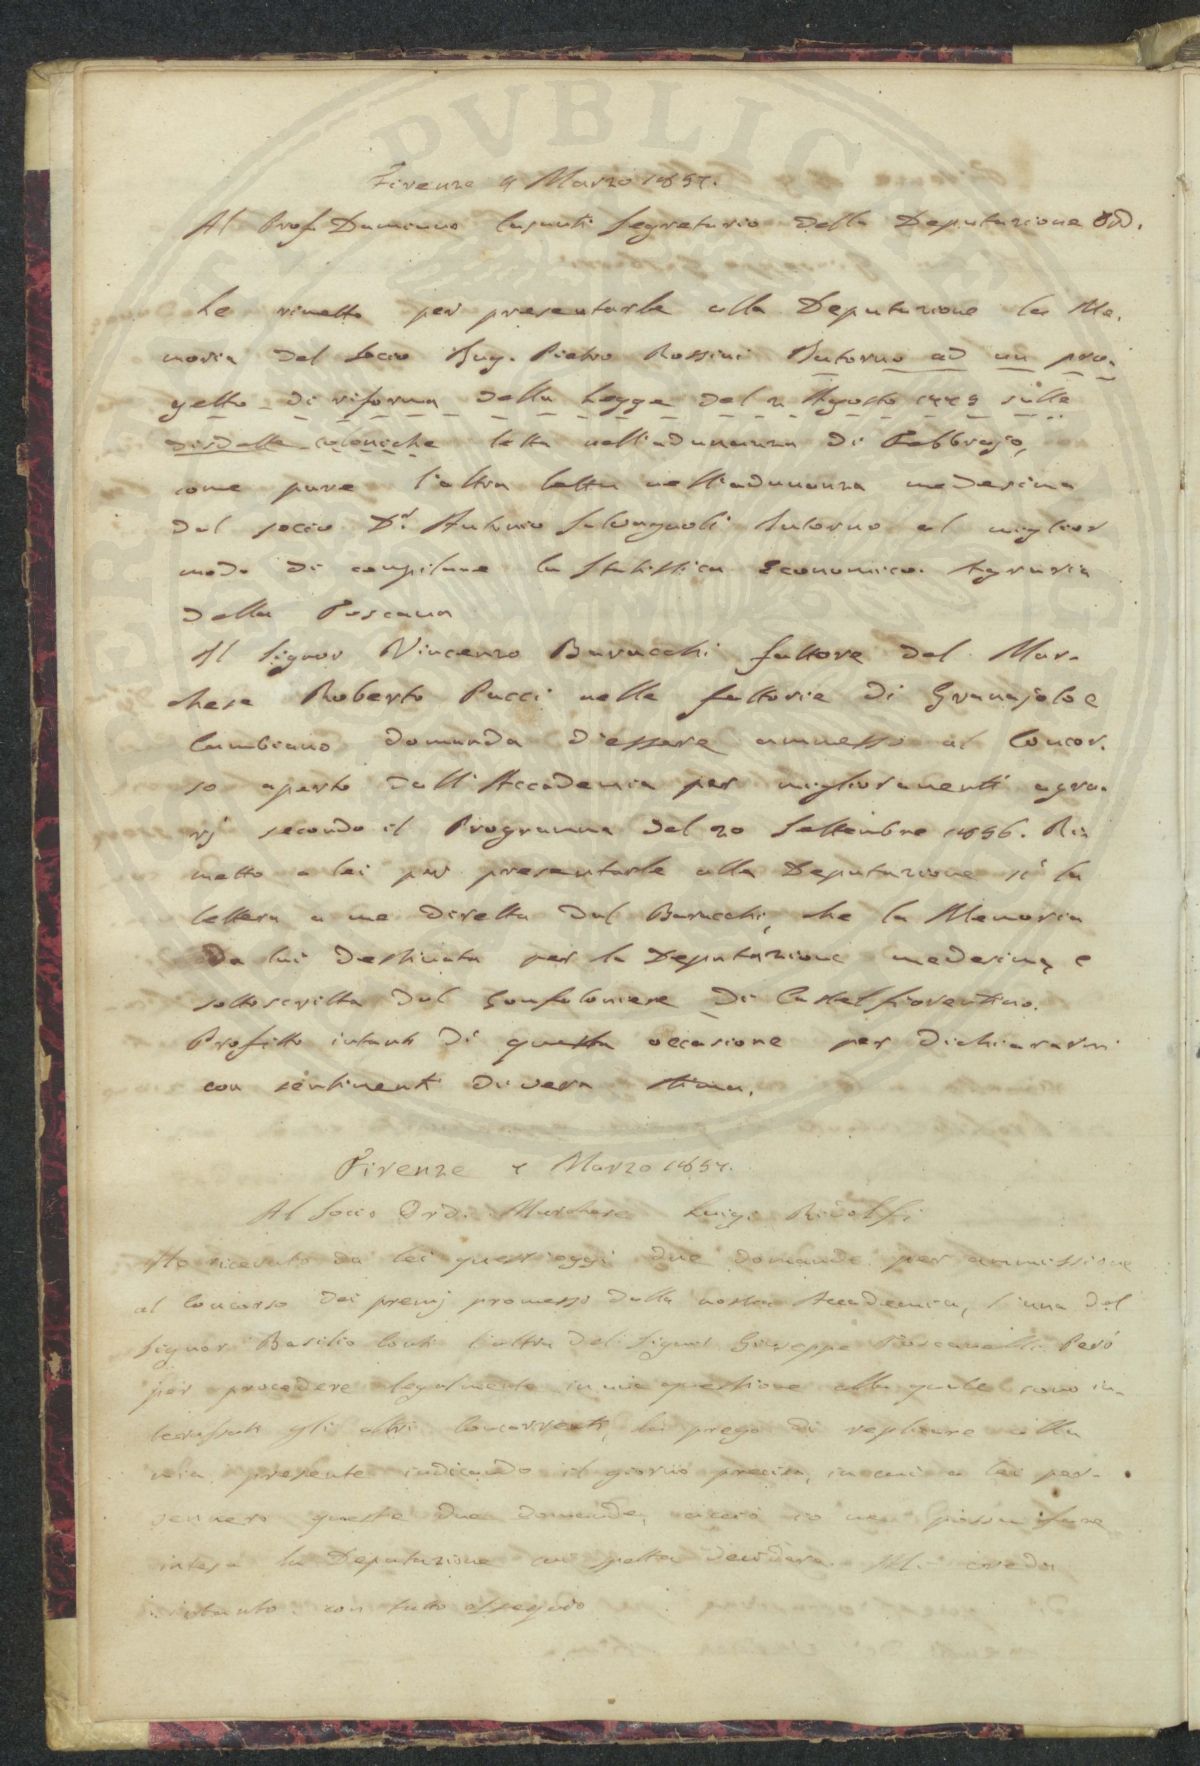 PVBLICE
Firenze 4 Marzo 1857.
Al Prof. Damiano Casanti Segretario della Deputazione Ord.
Le rimetto per presentarle alla Deputazione la Me-
moria del socio Ing. Pietro Rossini Intorno ad un pro-
getto di riforma della Legge del 2 Agosto sulle
disdette coloniche letta nell'adunanza di Febbrajo,
come pure l'altra letta nell'adunanza medesima
dal socio Dr. Antonio Salvagnoli Intorno al miglior
modo di compilare la Statistica Economico-Agraria
della Toscana
Il Signor Vincenzo Barucchi fattore del Mar-
chese Roberto Pucci nelle fattorie di Granajolo e
Cambiano domanda d'essere ammesso al Concor-
so aperto dall'Accademia per miglioramenti agra-
rj secondo il Programma del 20 Settembre 1856. Ri-
metto a lei per presentarle alla Deputazione sì la
lettera a me diretta dal Barucchi, che la Memoria
da lui destinata per la Deputazione medesima, e
sottoscritta dal Gonfaloniere di Castelfiorentino.
Profitto intanto di questa occasione per dichiararmi
con sentimenti di vera stima.
Firenze 7 Marzo 1857.
Al Socio Ord. Marchese Luigi Ridolfi
Ho ricevuto da lei quest'oggi due domande per ammissione
al Concorso dei premj promessi dalla nostra Accademia, l'una del
Signor Basilio Conti l'altra del Signor Giuseppe Toscanelli. Però
per procedere legalmente in una questione alla quale sono in-
teressati gli altri Concorrenti, la prego di replicare alla
mia presente indicando il giorno preciso, in cui a lei per-
vennero queste due domande, acciò io ne possa fare
intesa la Deputazione cui spetta decidere. Mi creda
intanto con tutto ossequio